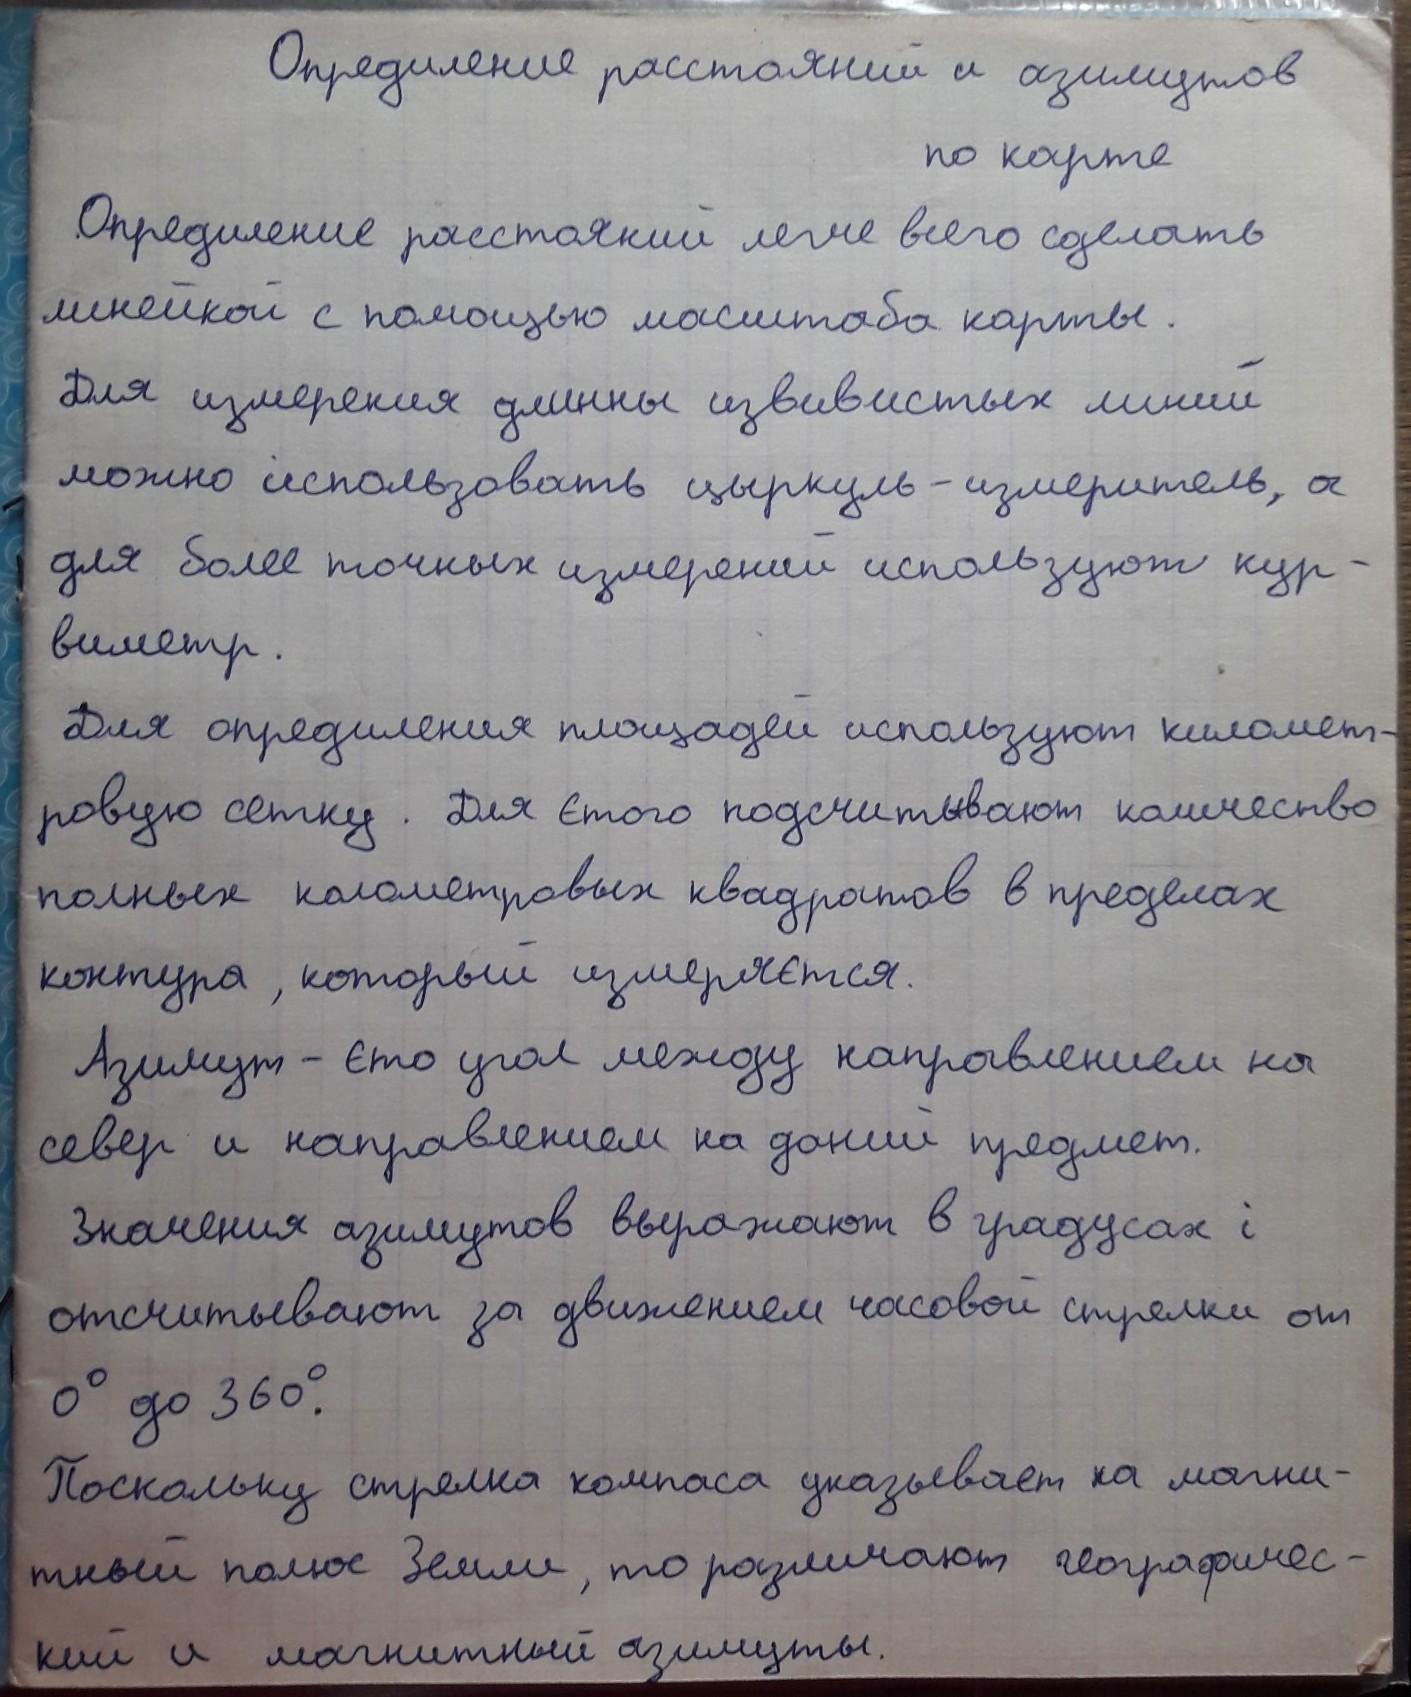 Определение расстояний и азимутов
по карте
Определение расстояний легче всего сделать
линейкой с помощью масштаба карты.
Для измерения длинны извивистых линий
можно использовать цыркуль-измеритель, а
для более точных измерений используют кур-
виметр.
Для определения площадей используют километ-
ровую сетку. Для єтого подсчитывают количество
полных колометровых квадратов в пределах
контура, который измеряєтся.
Азимут - єто угол между направлением на
север и направлением на даний предмет.
Значения азимутов выражают в градусах і
отсчитывают за движением часовой стрелки от
0° до 360°.
Поскольку стрелка компаса указывает на магни-
тный полюс Земли, то различают географичес-
кий и магнитный азимуты.